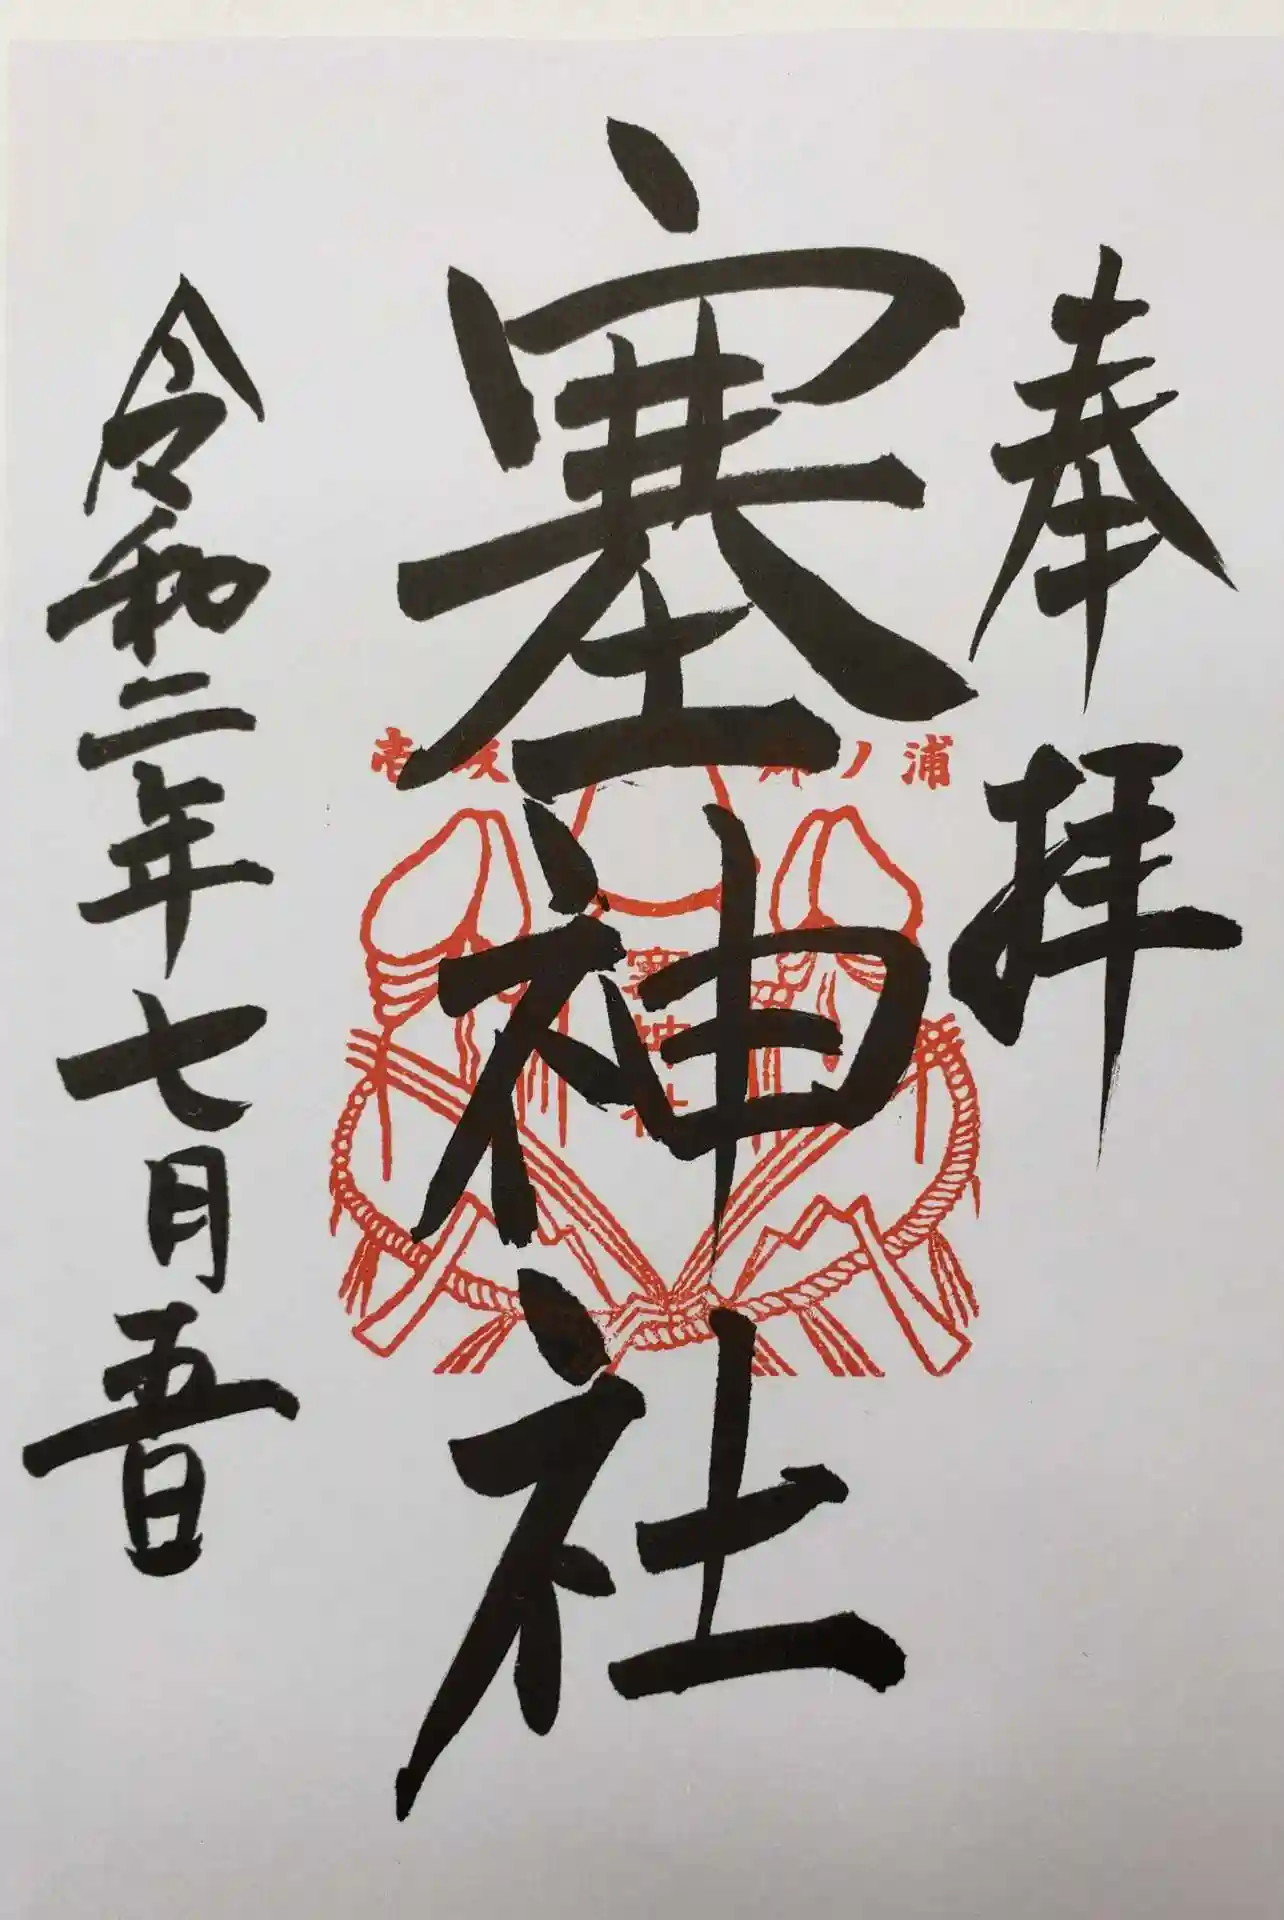 奉拝
塞神社
令和二年七月五日
壱岐 郷ノ浦
塞神社